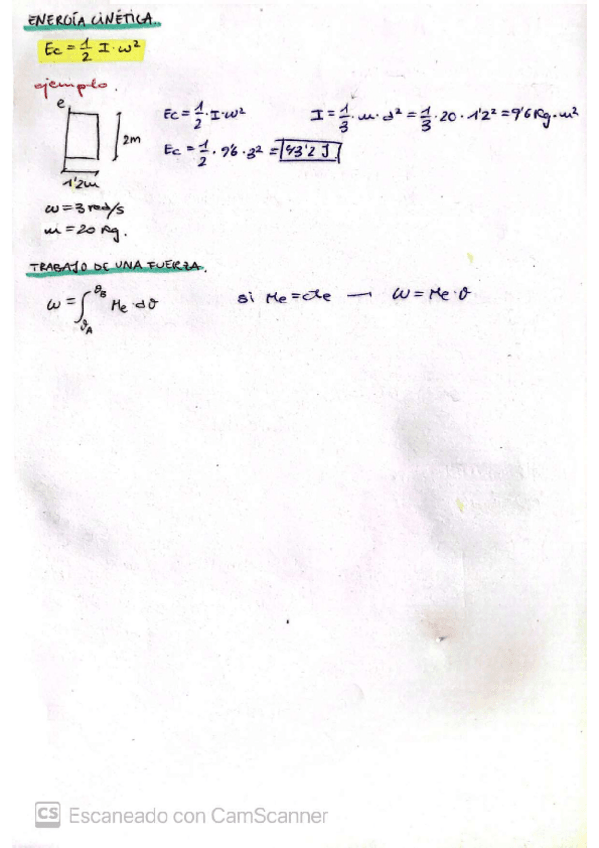 ENERGÍA CINÉTICA.
Ec = 1/2 I · ω²
ejemplo.
e
2m
1'2m
ω = 3 rad/s
m = 20 kg.
Ec = 1/2 · I · ω²
I = 1/3 · m · d² = 1/3 · 20 · 1'2² = 9'6 kg · m²
Ec = 1/2 · 9'6 · 3² = 43'2 J
TRABAJO DE UNA FUERZA.
ω = ∫θA θB Me · dθ
si Me = cte → ω = Me · θ
CS Escaneado con CamScanner